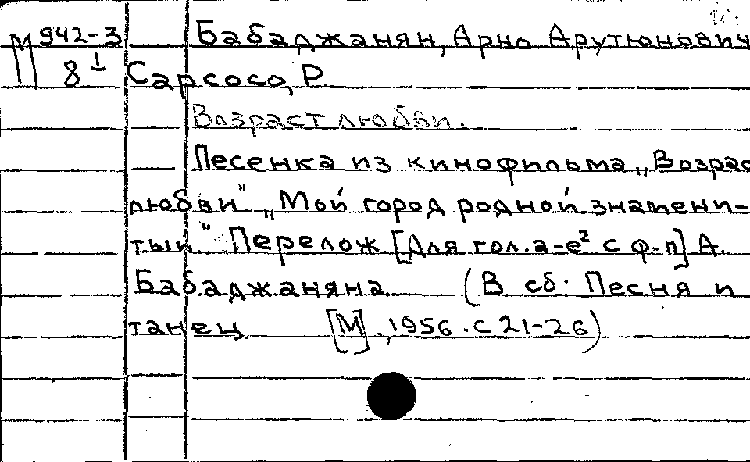 М 942-3 Бабаджанян, Арно Арутюнович
8 1 Сарсосо, Р.
Возраст любви.
Песенка из кинофильма „Возрас
любви" „Мой город родной знамени-
тый" Перелож [Для гол. а-е² с ф-п] А.
Бабаджаняна (В сб. Песня и
танец [М]., 1956. с 21-26)